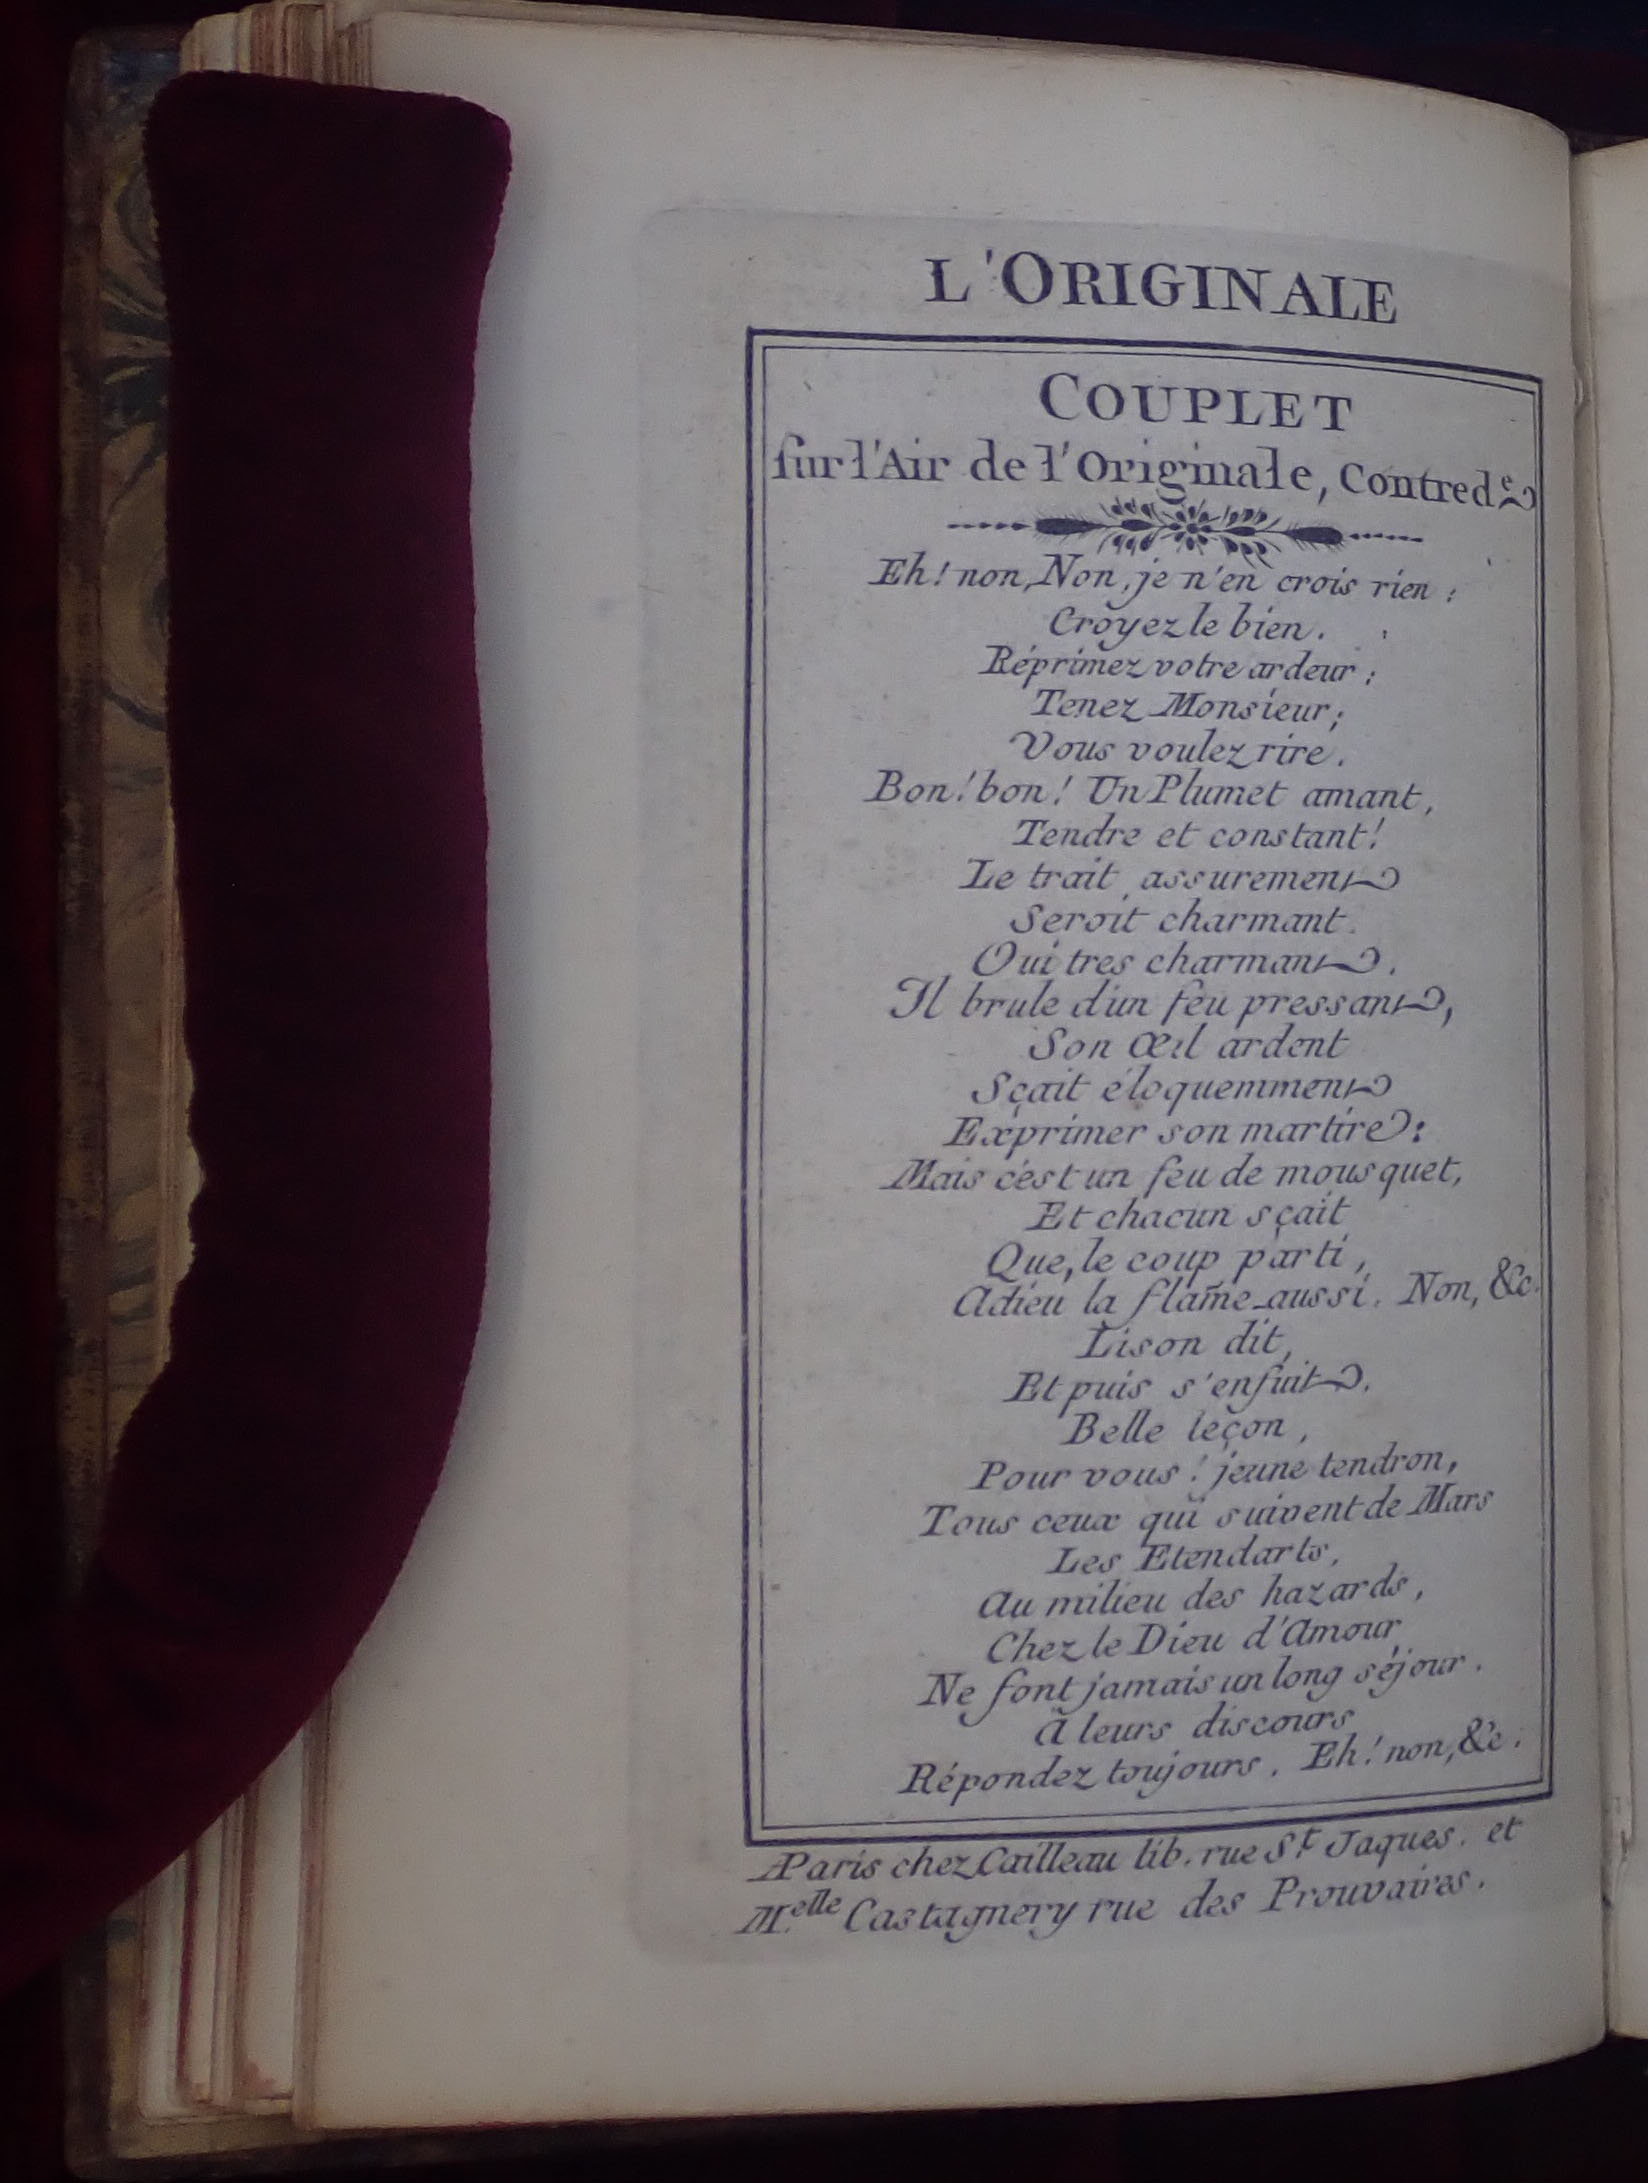 L'ORIGINALE
COUPLET
sur l'Air de l'Originale, Contred.e
Eh! non, Non, je n'en crois rien;
Croyez le bien.
Réprimez votre ardeur;
Tenez Monsieur;
Vous voulez rire.
Bon! bon! Un Plumet amant,
Tendre et constant!
Le trait assurement
Seroit charmant.
Oui tres charmant.
Il brule d'un feu pressant,
Son Œil ardent
Sçait éloquemment
Exprimer son martire:
Mais c'est un feu de mousquet,
Et chacun sçait
Que, le coup parti,
Adieu la flam̄e aussi. Non, &c.
Lison dit,
Et puis s'enfuit.
Belle leçon,
Pour vous! jeune tendron,
Tous ceux qui suivent de Mars
Les Etendarts,
Au milieu des hazards,
Chez le Dieu d'Amour
Ne font jamais un long séjour.
À leurs discours
Répondez toujours. Eh! non, &c.
A Paris chez Cailleau lib. rue S.t Jaques. et
M.elle Castagnery rue des Prouvaires.